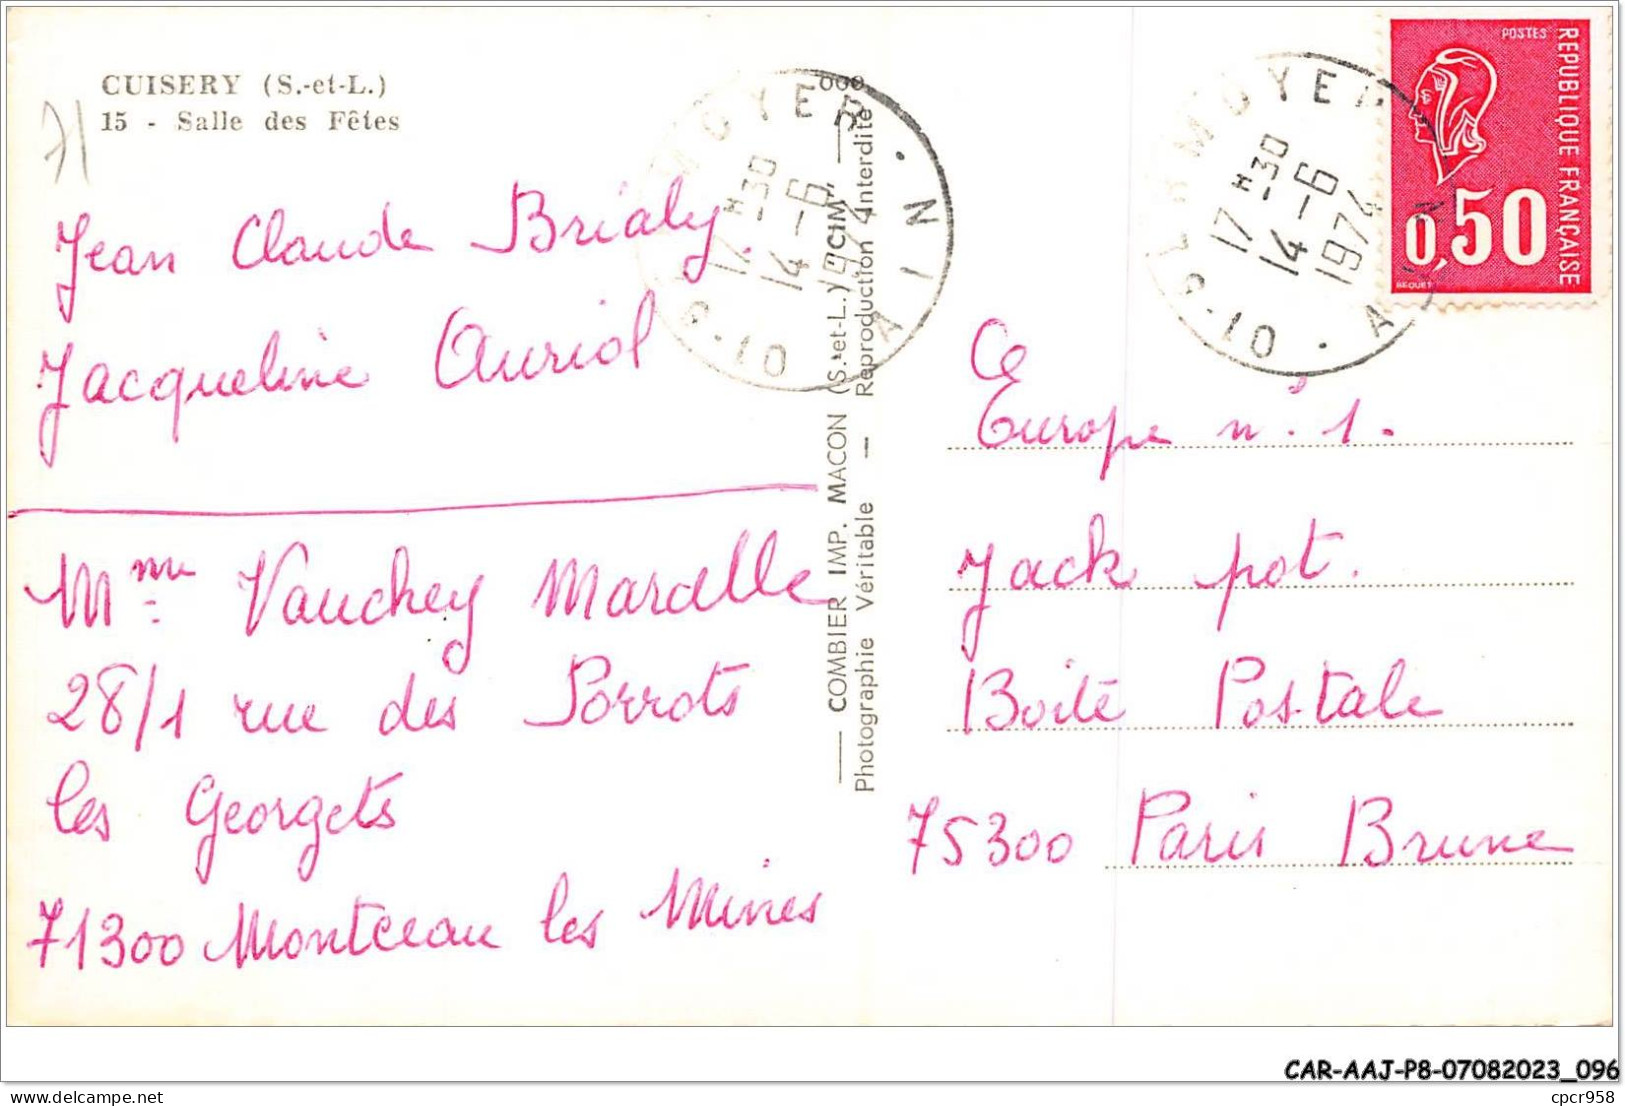 CUISERY (S.-et-L.)
15 - Salle des Fêtes
71
Jean Claude Brialy.
Jacqueline Auriol
Mme Vauchey Marcelle
28/1 rue des Porrots
les Georgets
71300 Montceau les Mines
COMBIER IMP. MACON (S.-et-L.) "CIM"
Photographie Véritable — Reproduction Interdite
17 H 30
14-6
1974
01 · AIN
17 H 30
14-6
1974
01 · A
POSTES
REPUBLIQUE FRANÇAISE
0,50
BEQUET
Europe n° 1.
Jack pot.
Boite Postale
75300 Paris Brune
CAR-AAJ-P8-07082023_096
cpcr958